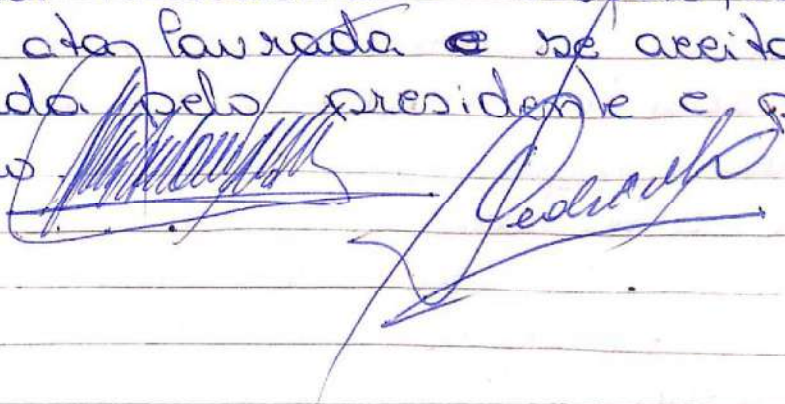 ata lavrada e se aceita
da pelo presidente e p
o.